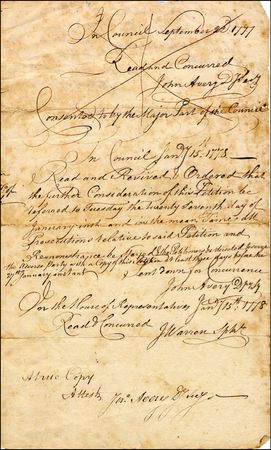 In Council September 2d 1777
Read and Concurred
John Avery Dy Secy
Consented to by the Major Part of the Council
In Council Jany 15th 1778
Read and Revived & Ordered that
the further Consideration of this Petition be
referred to Tuesday the twenty seventh day of
January inst and in the mean Time all
Prosecutions relative to said Petition and
Remonstrance be stayed & the Petitioner be directed to serve
the Adverse Party with a Copy of this Order at least three days before the
27th January instant
Sent down for Concurrence
John Avery Dy Secy
For the House of Representatives Jany 15th 1778
Read & Concurred J Warren Spkr
A true Copy
Attest
Jno Avery Dy Secy